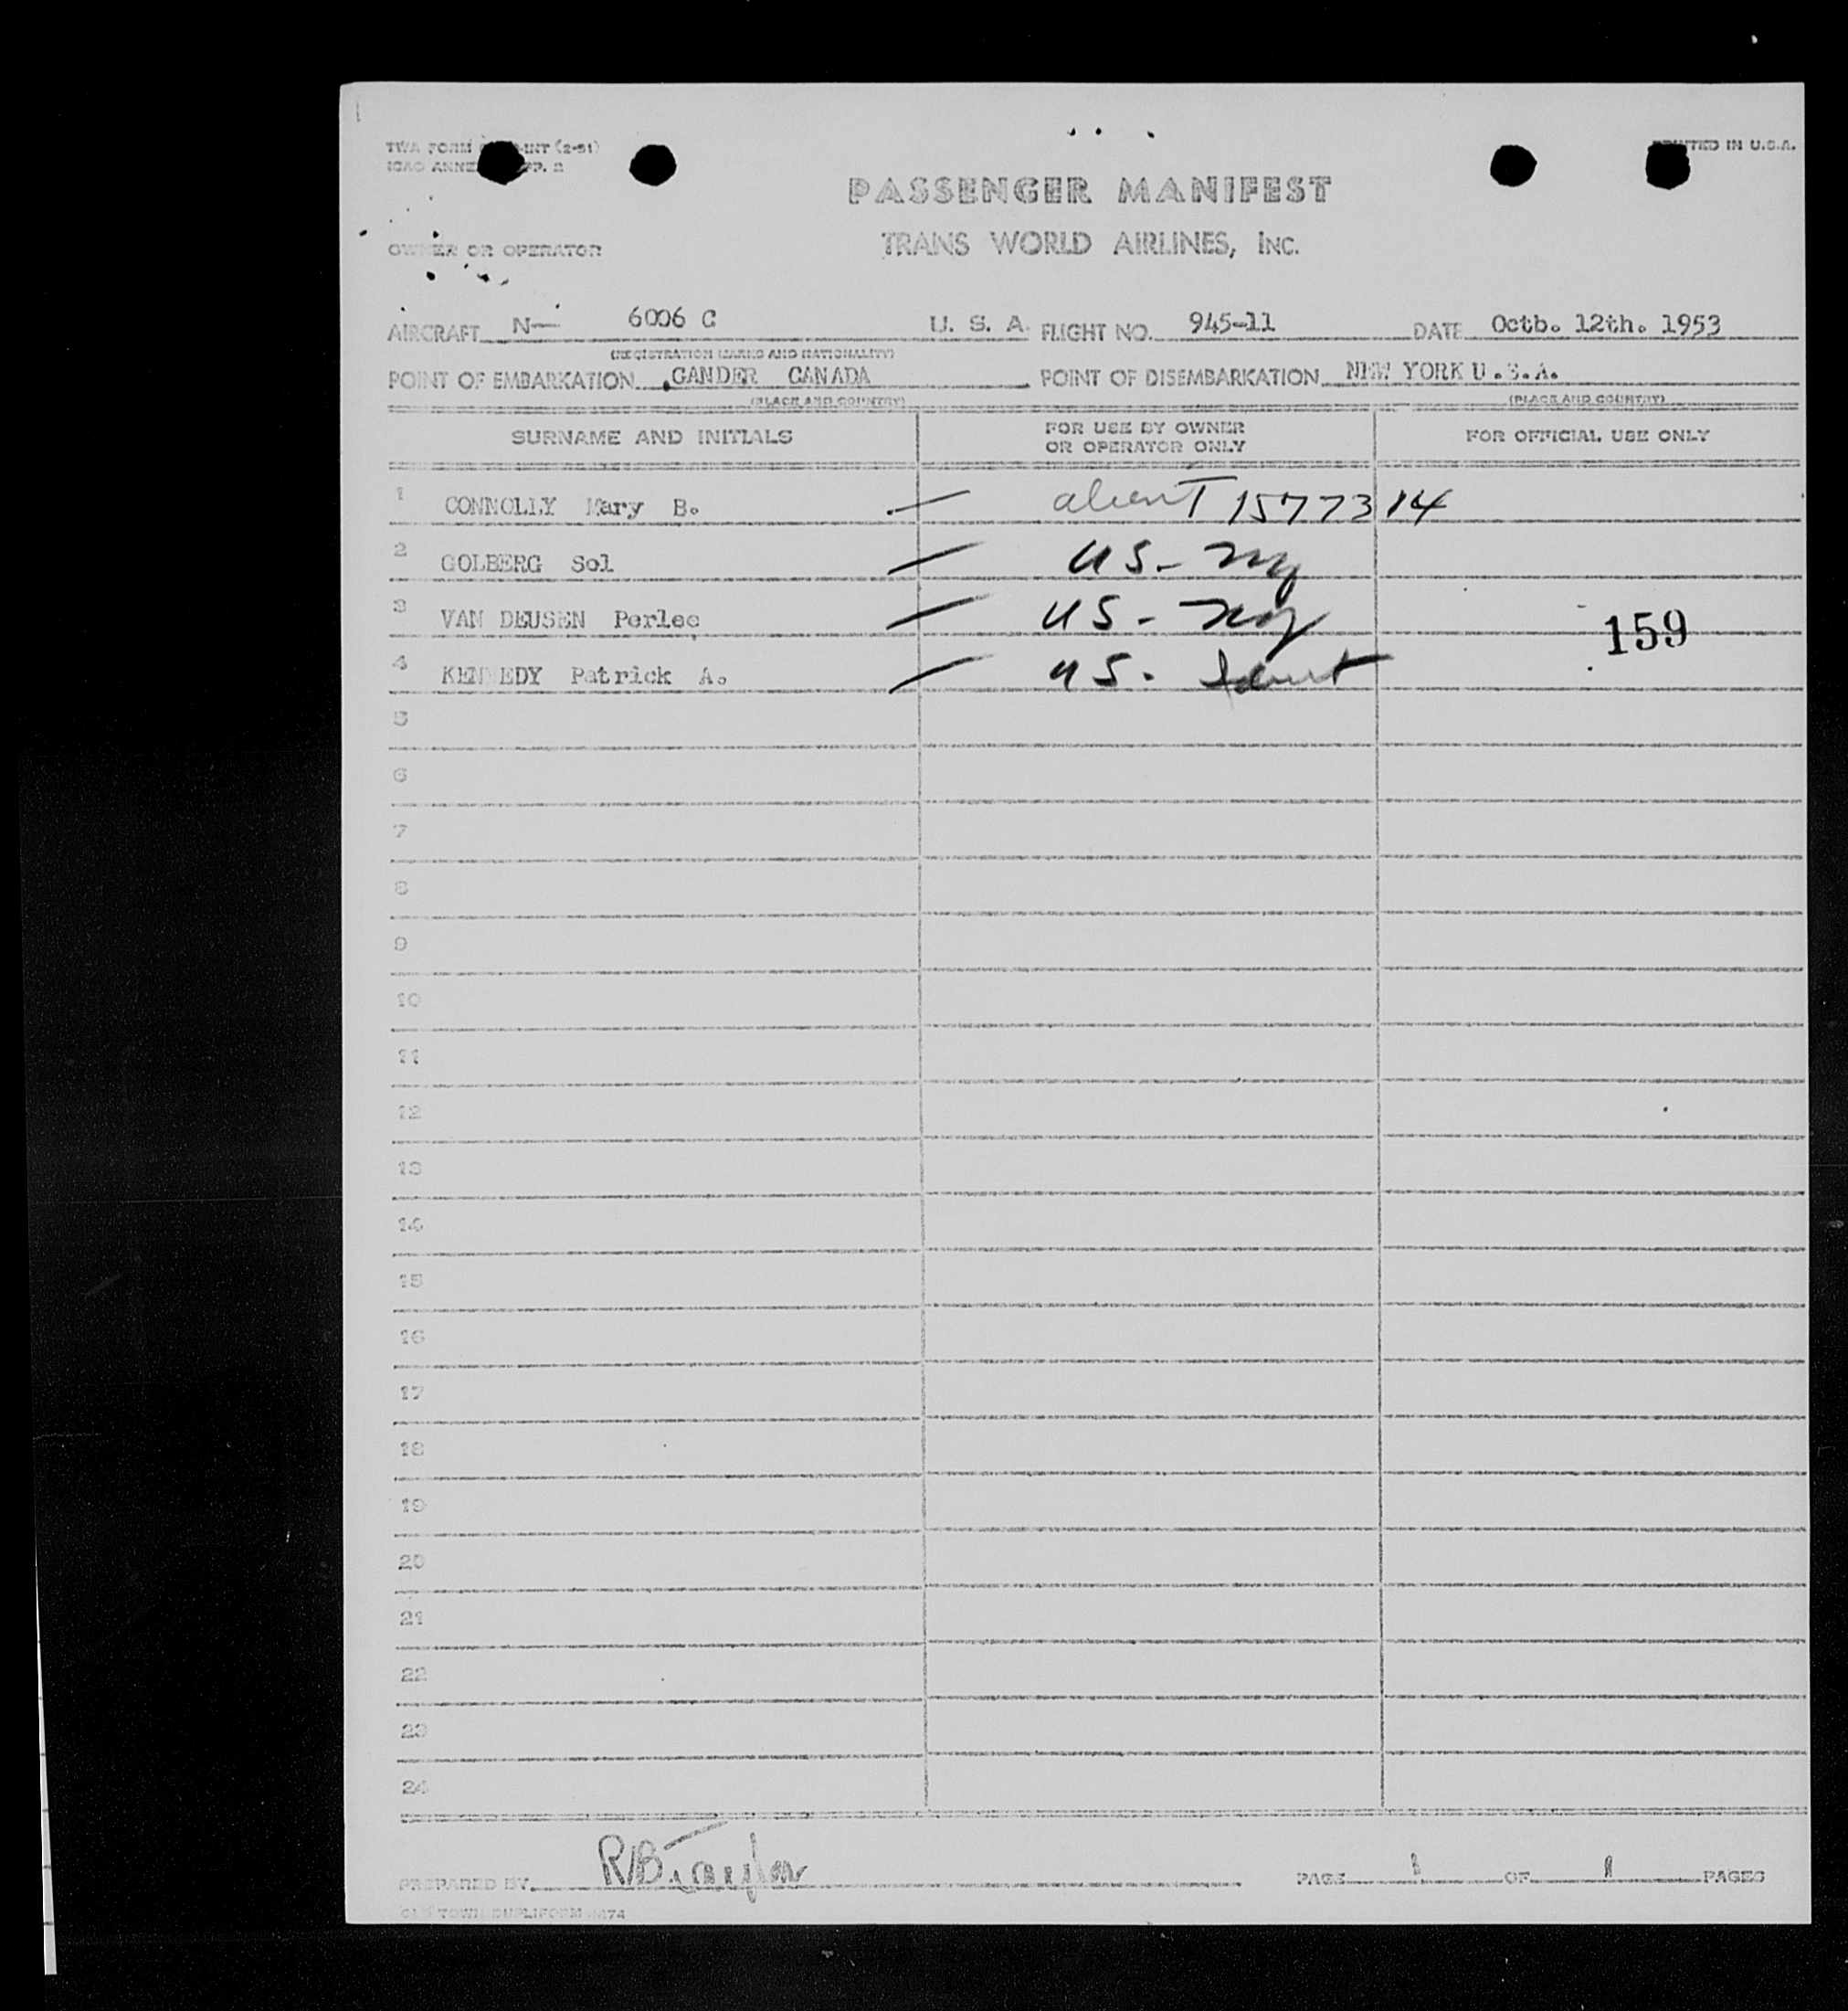 TWA FORM INT (2-51)
PRINTED IN U.S.A.
ICAO ANNEX APP. 2
PASSENGER MANIFEST
OWNER OR OPERATOR
TRANS WORLD AIRLINES, INC.
AIRCRAFT N— 6006 C U. S. A. FLIGHT NO. 945-11 DATE Octb. 12th. 1953
(REGISTRATION MARKS AND NATIONALITY)
POINT OF EMBARKATION GANDER CANADA POINT OF DISEMBARKATION NEW YORK U.S.A.
(PLACE AND COUNTRY) (PLACE AND COUNTRY)
SURNAME AND INITIALS FOR USE BY OWNER OR OPERATOR ONLY FOR OFFICIAL USE ONLY
1 CONNOLLY Mary B. — 1577314
2 GOLBERG Sol — US - ny
3 VAN DEUSEN Perlee — US - ny
159
4 KENNEDY Patrick A. — US -
5
6
7
8
9
10
11
12
13
14
15
16
17
18
19
20
21
22
23
24
PREPARED BY RB Taylor PAGE 1 OF 1 PAGES